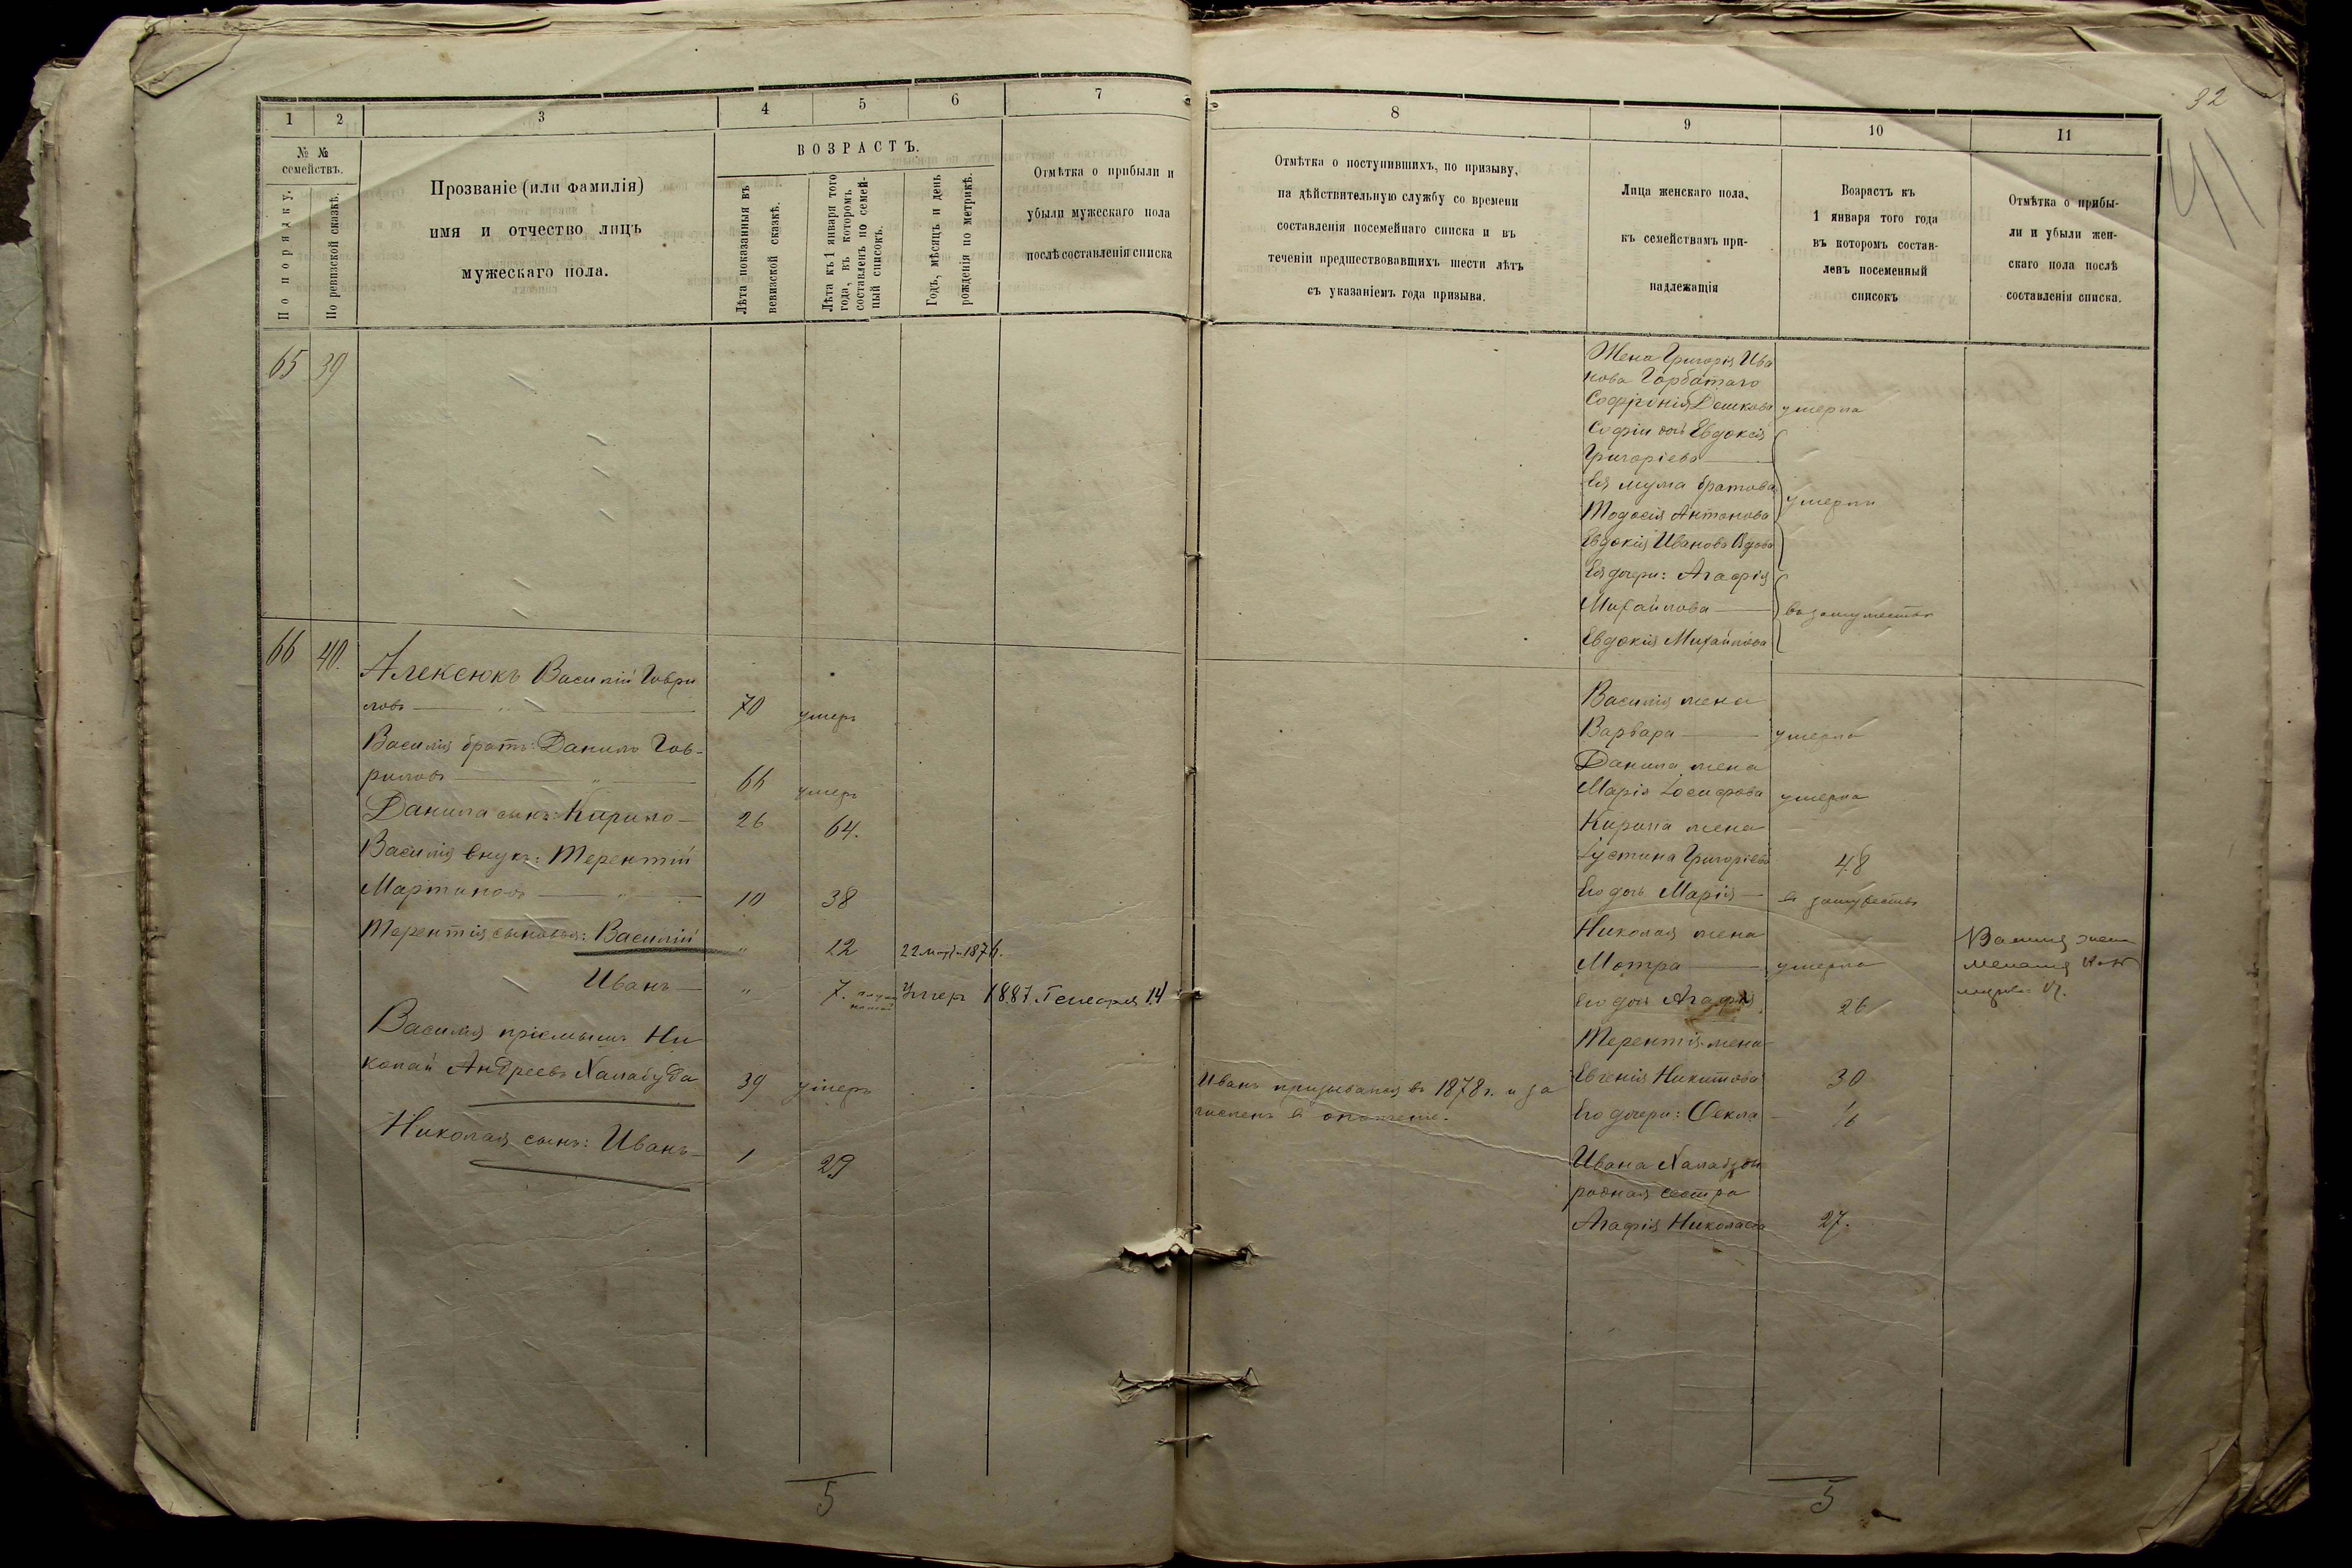 32
41
1 2 3 4 5 6 7
№ №
семействъ.
По порядку.
По ревизской сказкѣ.
Прозваніе (или фамилія)
имя и отчество лицъ
мужескаго пола.
ВОЗРАСТЪ.
Лѣта показанныя въ
ревизской сказкѣ.
Лѣта къ 1 января того
года, въ которомъ
составленъ по семей-
ный списокъ.
Годъ, мѣсяцъ и день
рожденія по метрикѣ.
Отмѣтка о прибыли и
убыли мужескаго пола
послѣ составленія списка
65 39
66 40.
Алексюкъ Василій Гаври
ловъ — „ — 70 умеръ
Василія братъ: Данило Гав-
риловъ — „ — 66 умеръ
Данила сынъ: Кирило — 26 64.
Василія внукъ: Терентій
Мартиновъ — „ — 10 38
Терентія сыновья: Василій „ 12 1876.
Иванъ — „ 7. Умеръ 1887. Генваря 14
Василія пріемышъ Ни
колай Андреевъ Халабуда 39 умеръ
Николая сынъ: Иванъ — 1 29
5
8 9 10 11
Отмѣтка о поступившихъ, по призыву,
на дѣйствительную службу со времени
составленія посемейнаго списка и въ
теченіи предшествовавшихъ шести лѣтъ
съ указаніемъ года призыва.
Лица женскаго пола,
къ семействамъ при-
надлежащія
Возрастъ къ
1 января того года
въ которомъ состав-
ленъ посеменный
списокъ
Отмѣтка о прибы-
ли и убыли жен-
скаго пола послѣ
составленія списка.
Жена Григорія Ива
нова Горбатаго
Софронія Дешкова умерла
Софіи дочь Евдокія
Григоріева —
Ея мужа братова
Тодосія Антонова умерли
Евдокія Иванова вдова
Ея дочери: Агафія
Михайлова — въ замужествѣ
Евдокія Михайлова
Василія жена
Варвара — умерла
Данила жена
Марія Іосифова умерла
Кирила жена
Іустина Григоріева 48
Его дочь Марія — въ замужествѣ
Николая жена
Мотра — умерла
Его дочь Агафія 26
Василія жена
Терентія жена
Евгенія Никитова 30
Его дочери: Фекла
Ивана Халабуды
родная сестра
Агафія Николаева 27.
Иванъ призывался въ 1878 г. и за
численъ въ ополченіе.
5